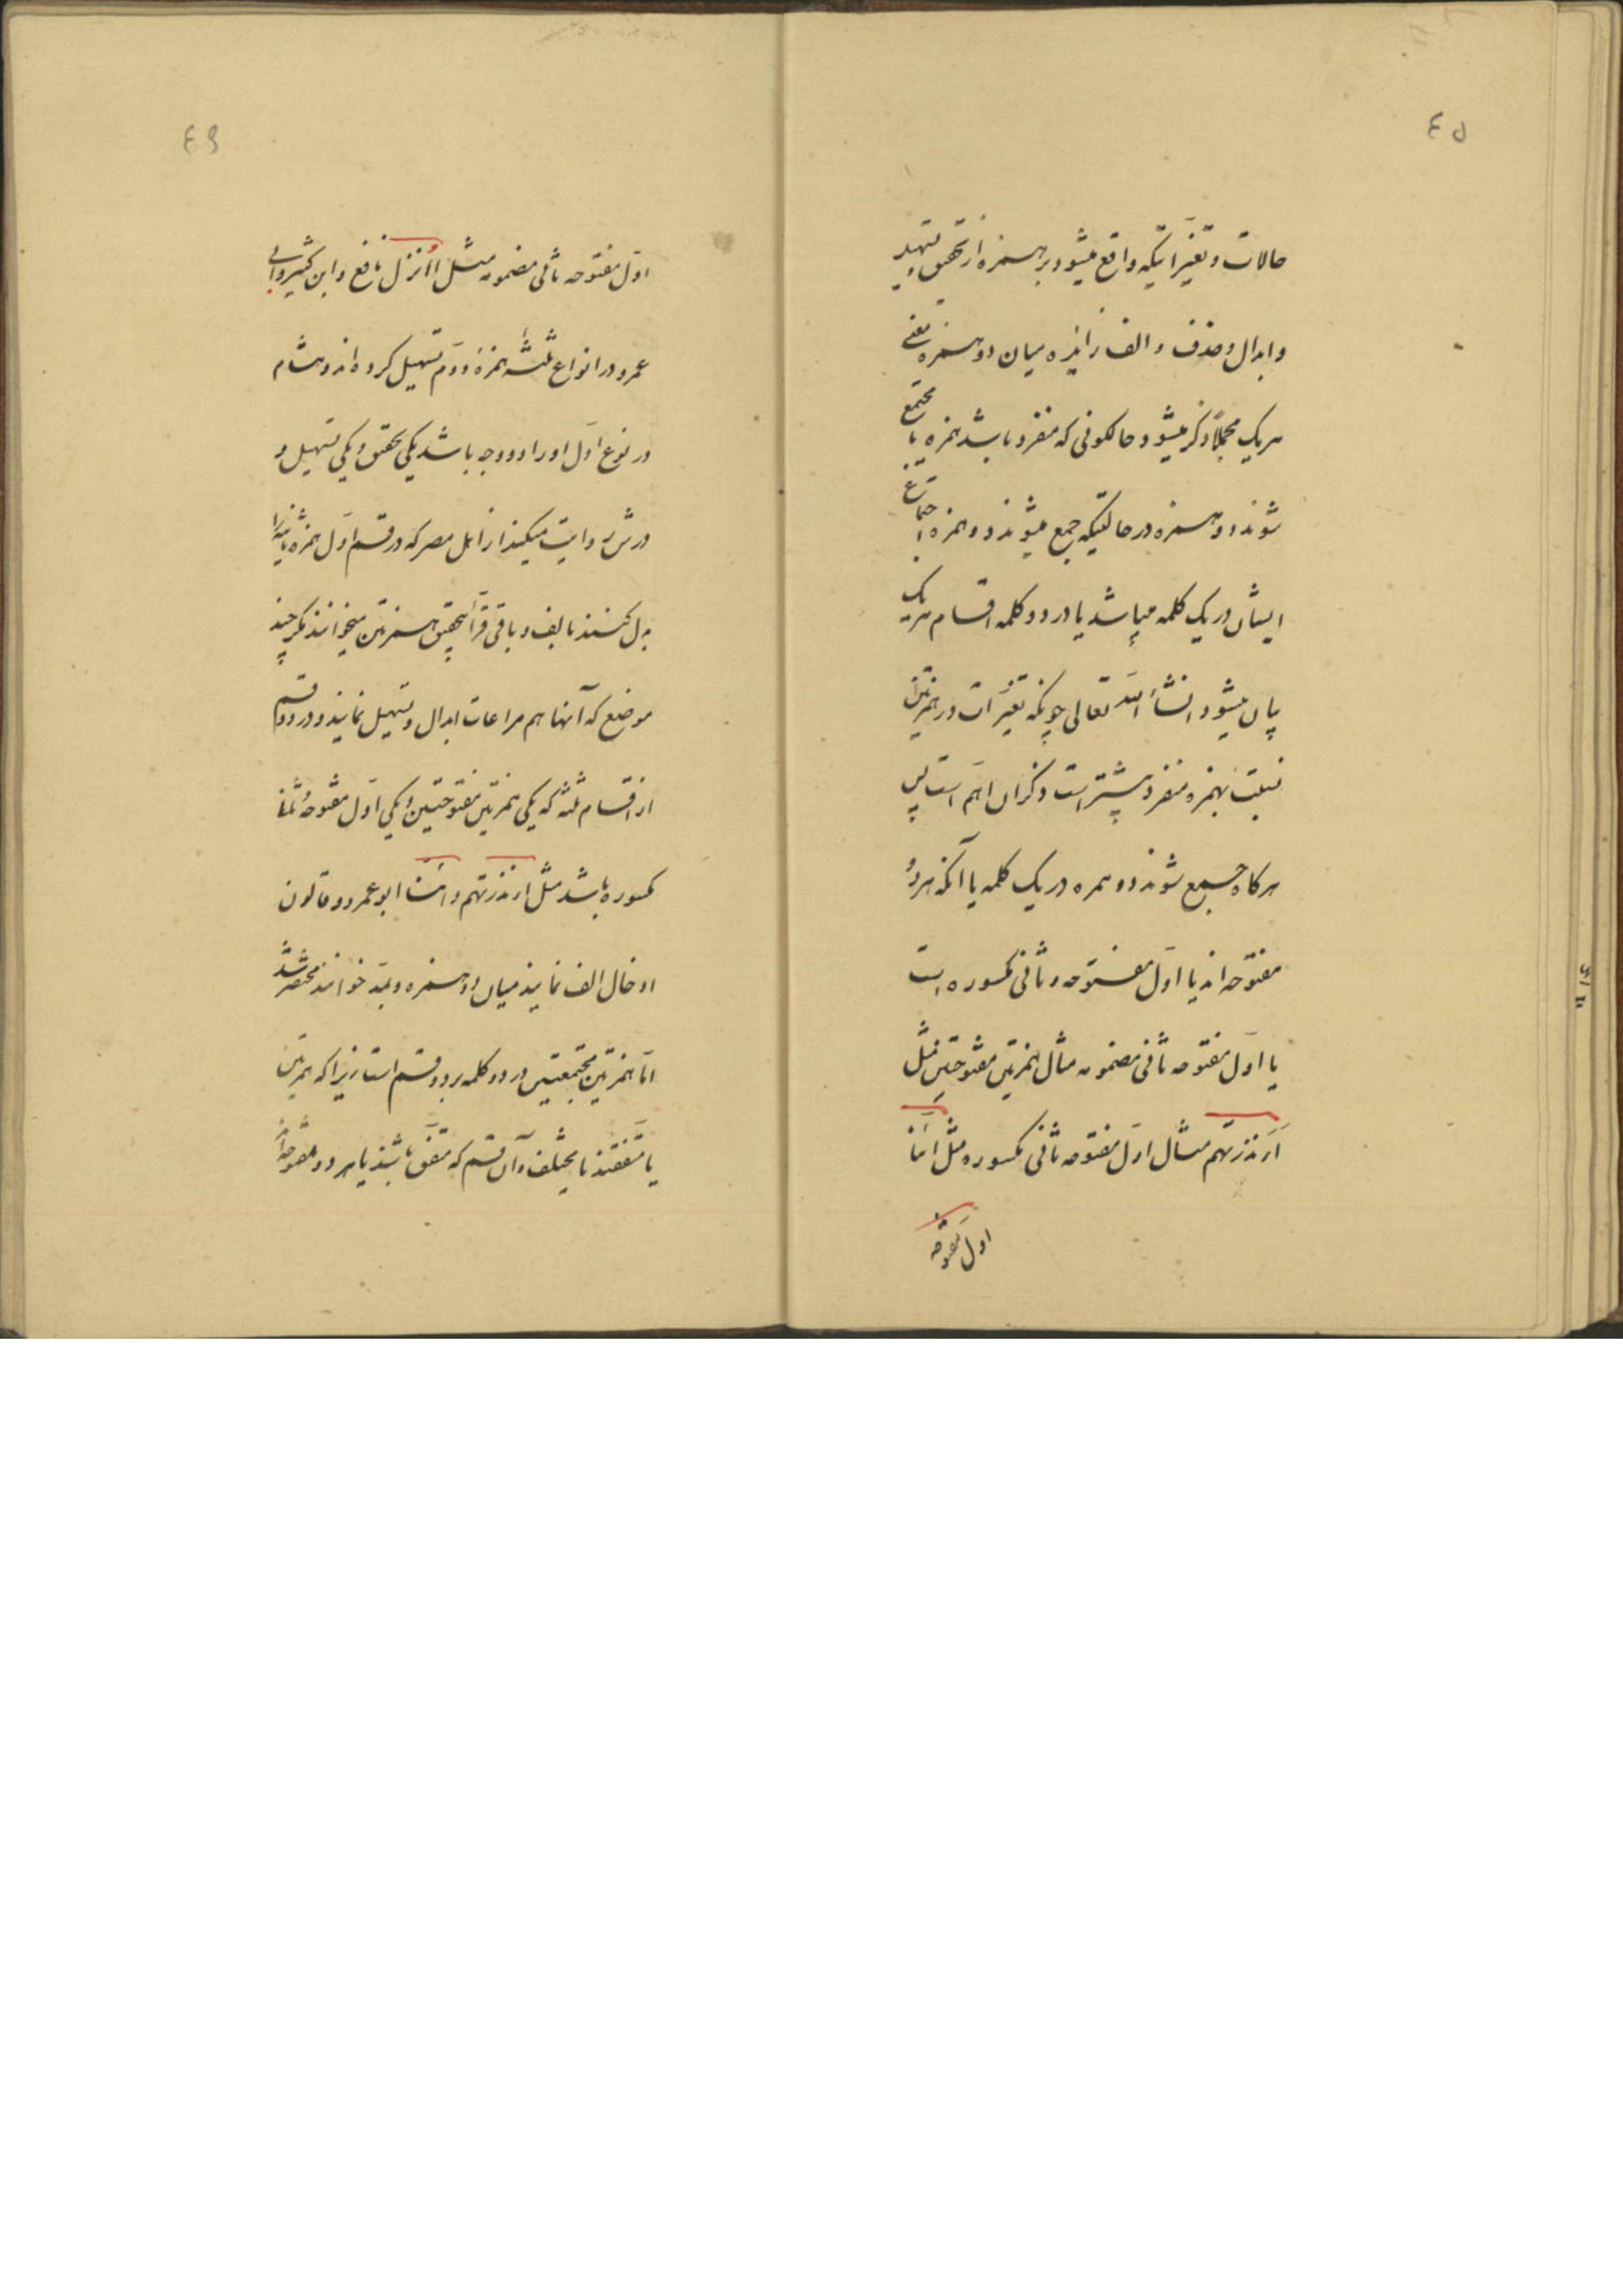 ٤٥
حالات و تغیّراتیکه واقع میشود بر همزه از تحقیق و تسهیل
و ابدال و حذف و الف زایده میان دو همزه یعنی
هر یک مجملاً ذکر میشود حالکونی که منفرد باشد همزه یا مجتمع
شوند دو همزه در حالتیکه جمع میشوند دو همزه اجتماع
ایشان در یک کلمه میباشد یا در دو کلمه اقسام هر یک
بیان میشود انشاء الله تعالی چونکه تغیّرات در همزتین
نسبت بهمزه منفرد بیشتر است و ذکر آن اهم است پس
هرکاه جمیع شوند دو همزه در یک کلمه یا آنکه هر دو
مفتوحه اند یا اوّل مفتوحه و ثانی مکسوره است
یا اوّل مفتوحه ثانی مضمومه مثال همزتین مفتوحتین مثل
أَنذرتهم مثال اوّل مفتوحه ثانی مکسوره مثل أئنا
اوّل مفتوحه
٤٦
اوّل مفتوحه ثانی مضمومه مثل أأنزل نافع و ابن کثیر و ابی
عمرو در انواع ثلثه همزهٔ دوّم تسهیل کرده اند و هشام
در نوع اوّل او را دو وجه باشد یکی تحقیق و یکی تسهیل و
ورش روایت میکنند از اهل مصر که در قسم اوّل همزه ثانیه را
بدل کنند بالف و باقی قرّاء بتحقیق همزتین میخوانند مکر چند
موضع که آنها هم مراعات ابدال و تسهیل نمایند و در دو قسم
از اقسام ثلثه که یکی همزتین مفتوحتین و یکی اوّل مفتوحهٔ
مکسوره باشد مثل أنذرتهم و أئنا ابو عمرو و قالون
ادخال الف نمایند میان دو همزه و بمدّ خوانند مختصر شد
امّا همزتین مجتمعتین در دو کلمه بر دو قسم است زیرا که همزتین
یا متفقند یا مختلف و آن قسم که متّفق باشند یا هر دو مفتوحه